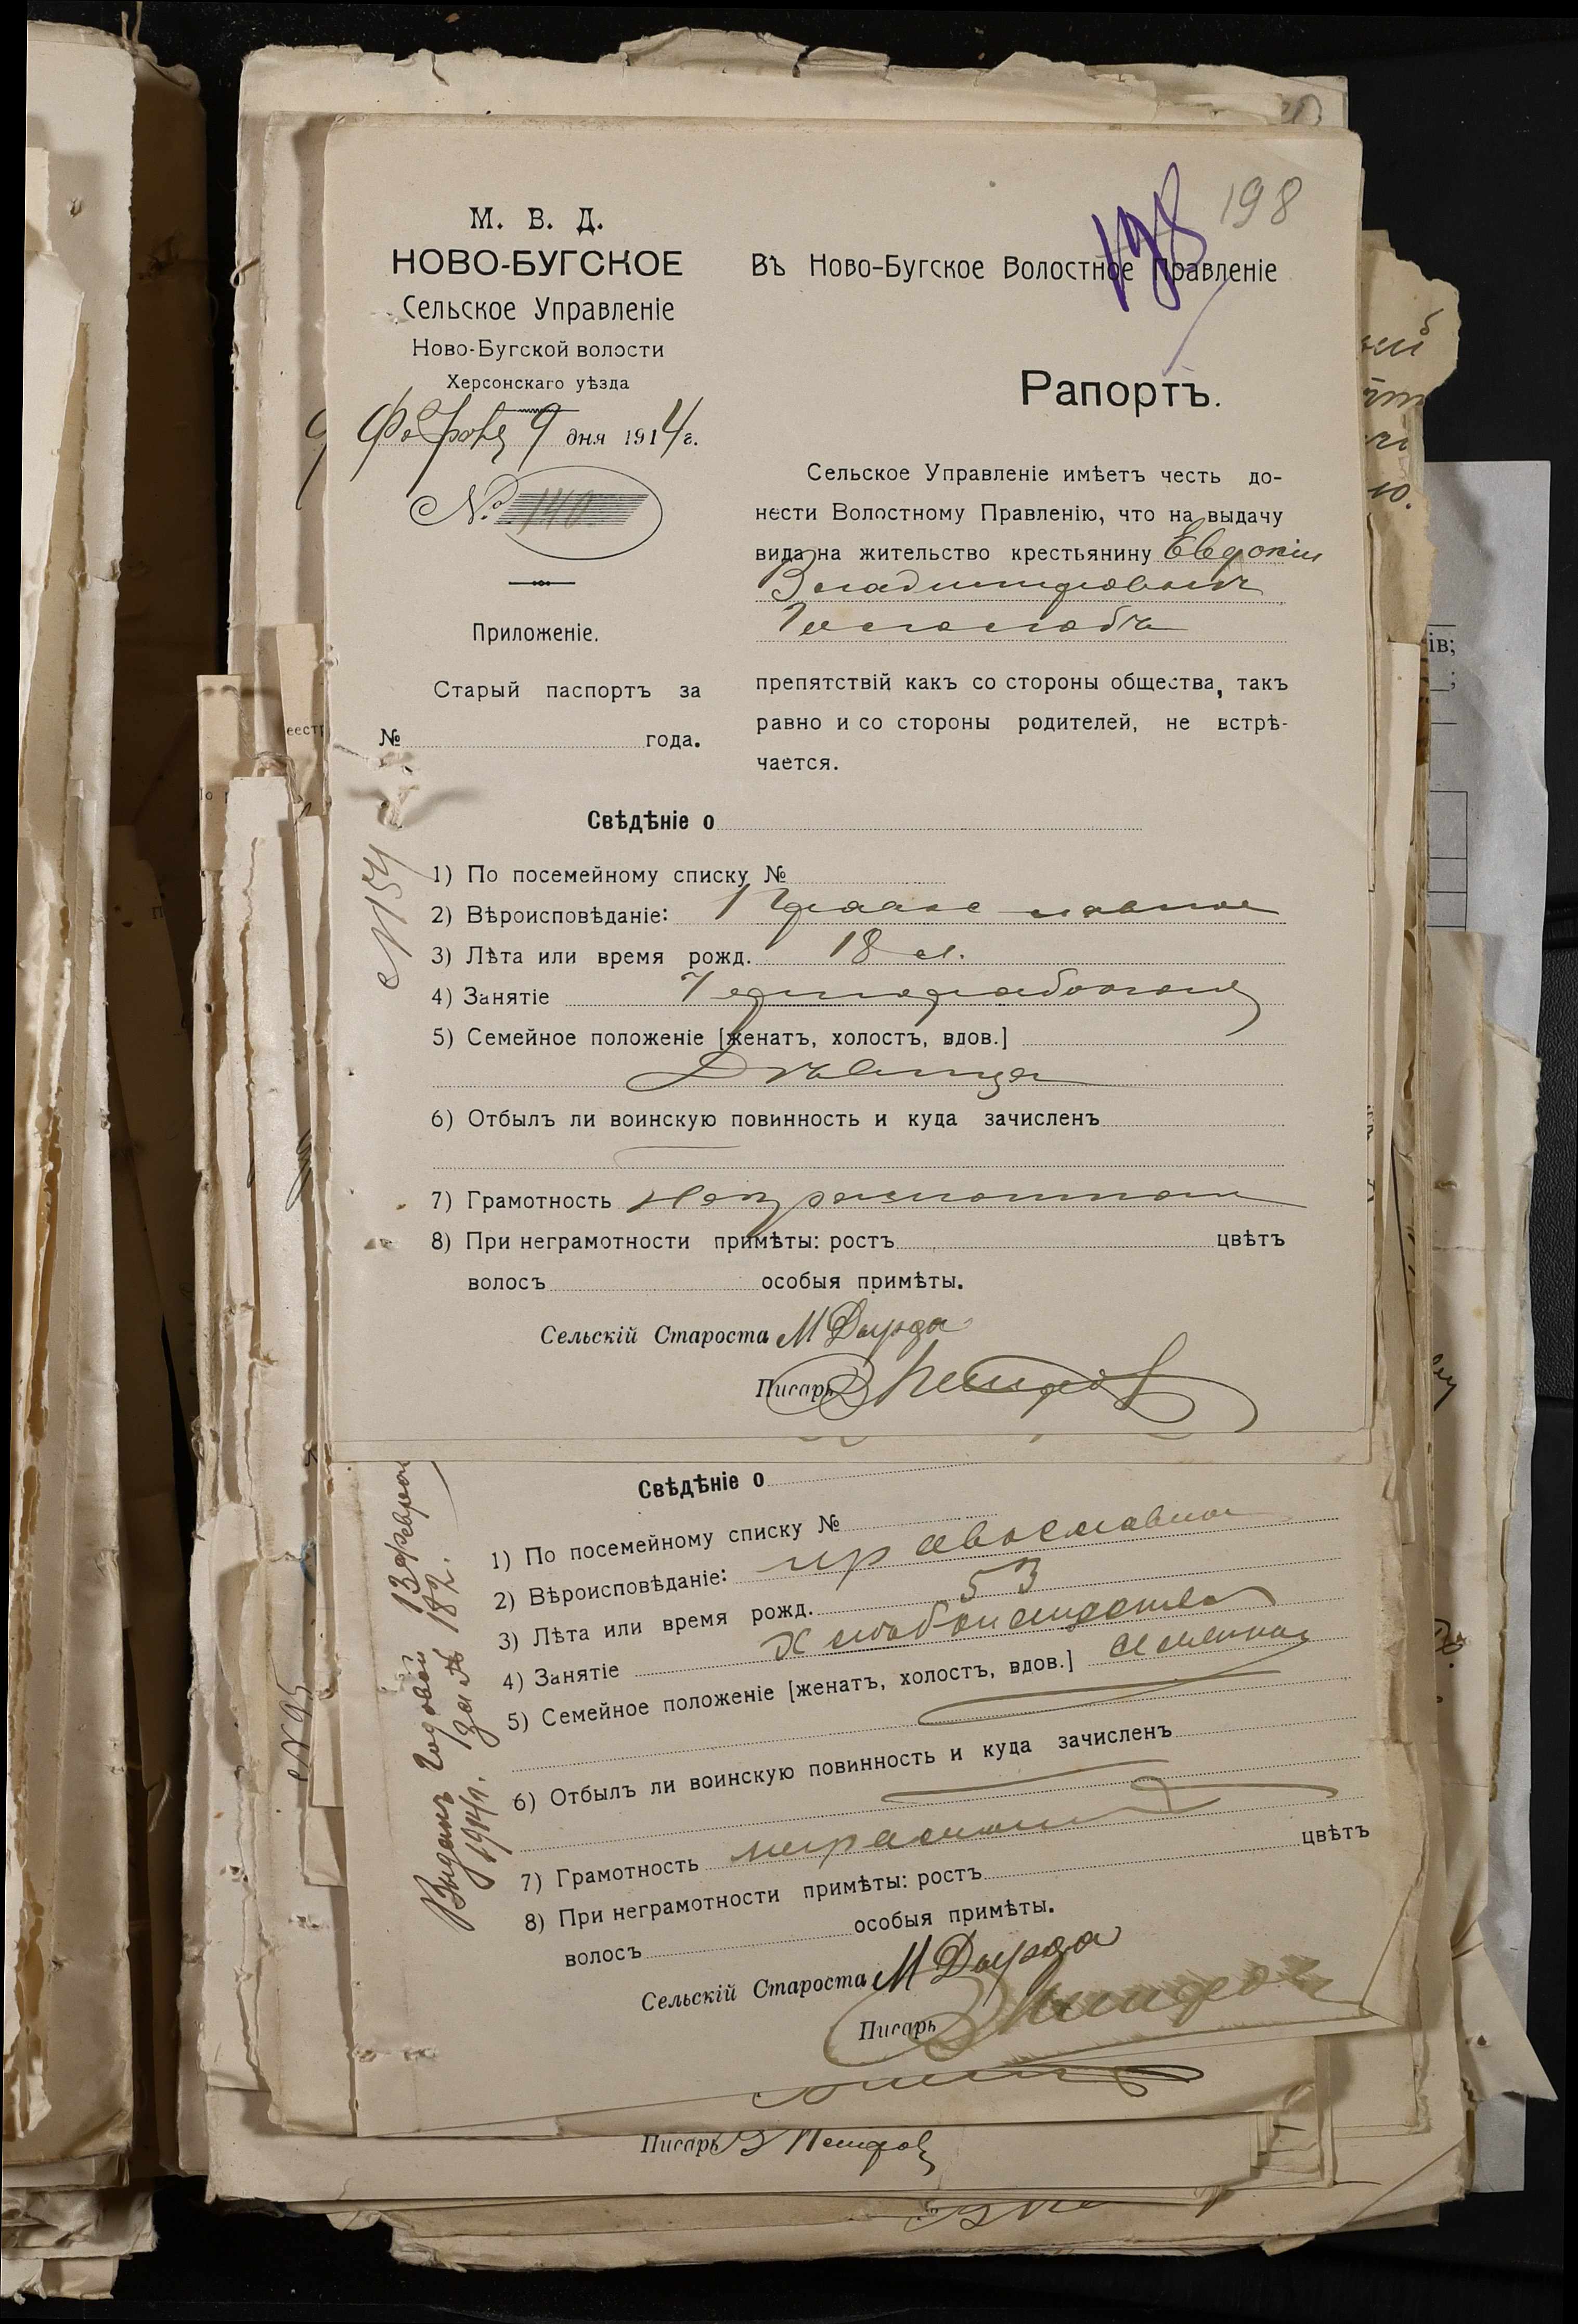 198
198
М. В. Д.
НОВО-БУГСКОЕ
Сельское Управленіе
Ново-Бугской волости
Херсонскаго уѣзда
9 дня 1914 г.
№ 140
Приложеніе.
Старый паспортъ за
№ года.
Въ Ново-Бугское Волостное Правленіе
Рапортъ.
Сельское Управленіе имѣетъ честь до-
нести Волостному Правленію, что на выдачу
вида на жительство крестьянину Евдокіи
Владимировой
препятствій какъ со стороны общества, такъ
равно и со стороны родителей, не встрѣ-
чается.
№ 154
Свѣдѣніе о
1) По посемейному списку №
2) Вѣроисповѣданіе: Православное
3) Лѣта или время рожд. 18 л.
4) Занятіе Чернорабочая
5) Семейное положеніе [женатъ, холостъ, вдов.]
Дѣвица
6) Отбылъ ли воинскую повинность и куда зачисленъ
7) Грамотность Неграмотная
8) При неграмотности примѣты: ростъ цвѣтъ
волосъ особыя примѣты.
Сельскій Староста М Дырда
Писарь
Выданъ годовой 13 феврал
1914 г. за № 182.
№ 95
Свѣдѣніе о
1) По посемейному списку №
2) Вѣроисповѣданіе: православное
3) Лѣта или время рожд. 53
4) Занятіе
5) Семейное положеніе [женатъ, холостъ, вдов.]
6) Отбылъ ли воинскую повинность и куда зачисленъ
7) Грамотность
8) При неграмотности примѣты: ростъ цвѣтъ
волосъ особыя примѣты.
Сельскій Староста М Дырда
Писарь
Писарь